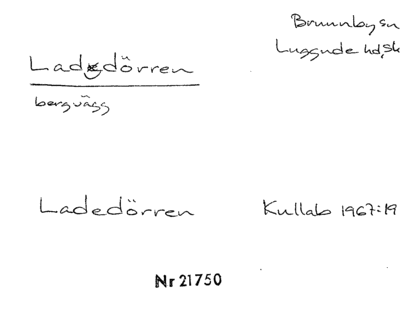 Brunnby sn
Luggude hd, sk
Ladedörren
bergvägg
Ladedörren
Kullab 1967:19
Nr 21750